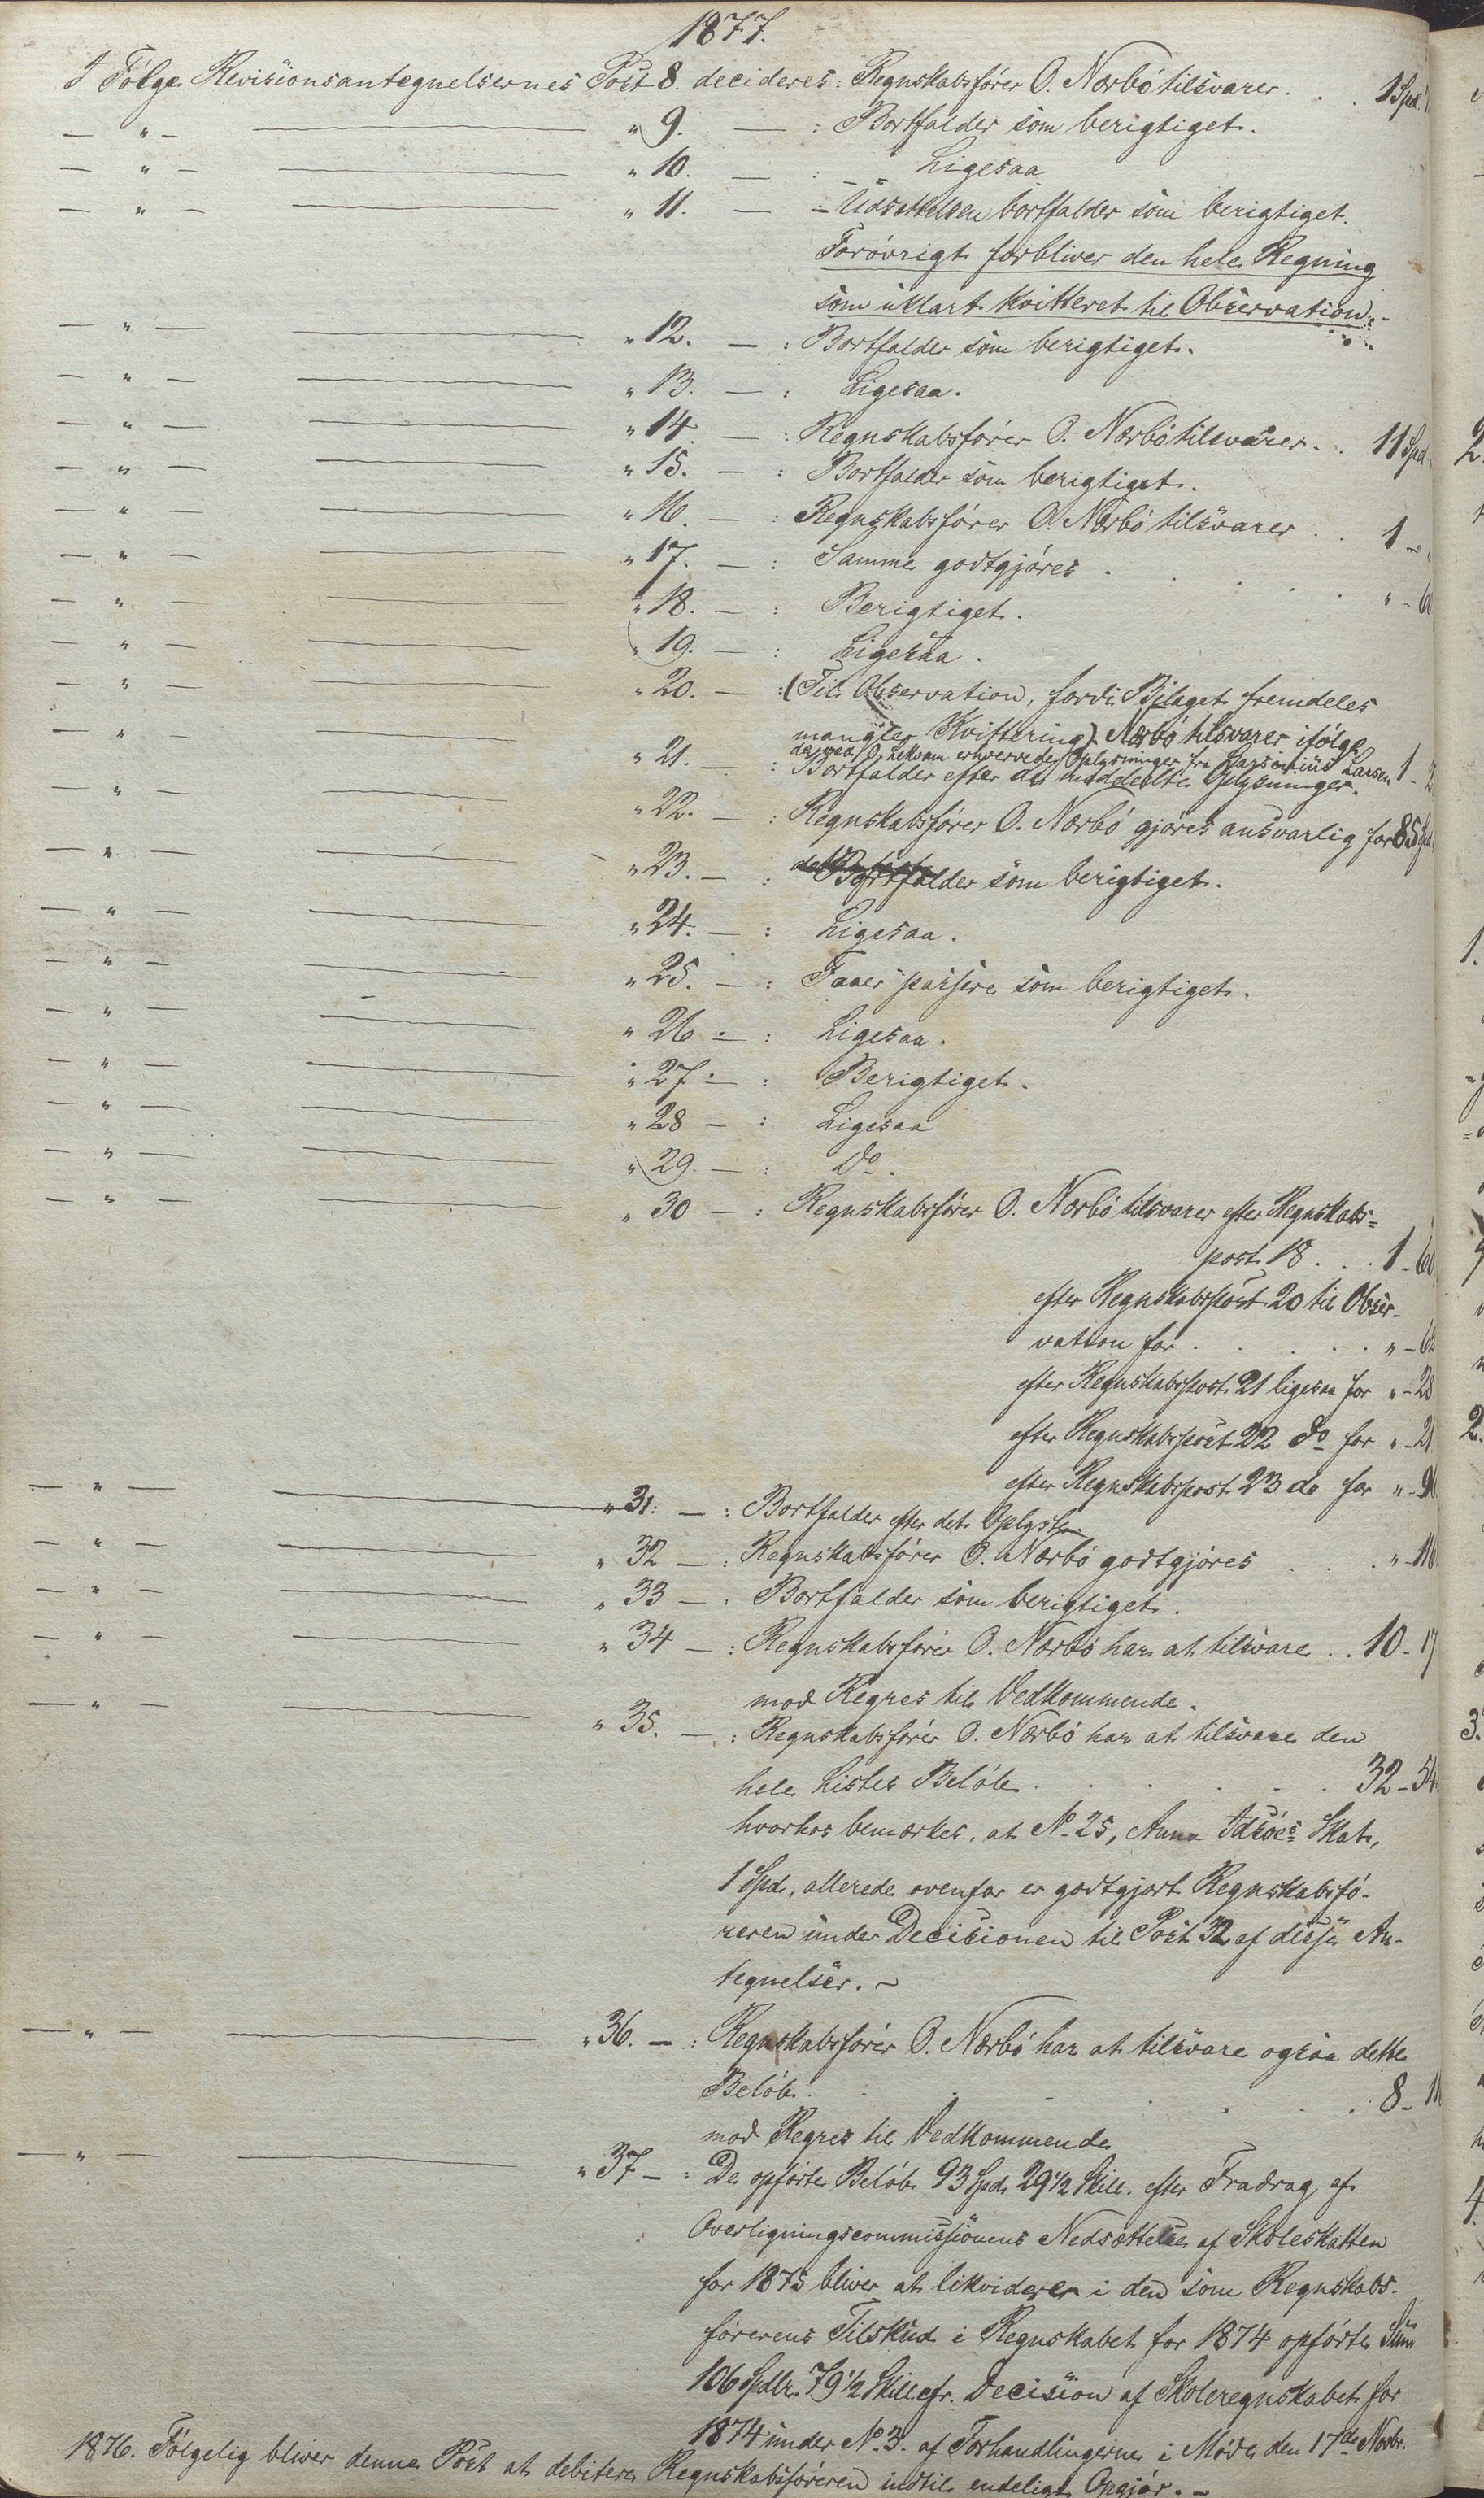 1877.
I Følge Revisionsantegnelsernes Post 8. decideres: Regnskabsfører O. Nærbø tilsvarer . . . 1 Spd.
— " — — " 9. — : Bortfalder som berigtiget.
— " — — " 10. — : Ligesaa
— " — — " 11. — : Udsættelsen bortfalder som berigtiget.
Forøvrigt forbliver den hele Regning
som uklart kvitteret til Observation. -
— " — — " 12. — : Bortfalder som berigtiget.
— " — — " 13. — : Ligesaa.
— " — — " 14. — : Regnskabsfører O. Nærbø tilsvarer . . 11 Spd.
— " — — " 15. — : Bortfalder som berigtiget.
— " — — " 16. — : Regnskabsfører O. Nærbø tilsvarer . . 1 - "
— " — — " 17. — : Samme godtgjøres . . . . " - 6
— " — — " 18. — : Berigtiget.
— " — — " 19. — : Ligesaa.
— " — — " 20. — : (Til Observation, fordi Bilaget fremdeles
mangler Kvittering). Nærbø tilsvarer ifølge
de ved O. erhvervede Oplysninger fra Larsen 1 - 2
— " — — " 21. — : Bortfalder efter de meddeelte Oplysninger.
— " — — " 22. — : Regnskabsfører O. Nærbø gjøres ansvarlig for 85 Spd.
— " — — " 23. — : Bortfalder som berigtiget.
— " — — " 24. — : Ligesaa.
— " — — " 25. — : Faaer passere som berigtiget.
— " — — " 26 — : Ligesaa.
— " — — " 27 — : Berigtiget.
— " — — " 28 — : Ligesaa
— " — — " 29. — : Do.
— " — — " 30 — : Regnskabsfører O. Nærbø tilsvarer efter Regnskabs=
post 18 . . . 1 - 60
efter Regnskabspost 20 til Obser-
vation for . . . . . " - 6
efter Regnskabspost 21 ligesaa for " - 28
efter Regnskabspost 22 do for " - 21
efter Regnskabspost 23 do for " - 9
— " — — " 31: — : Bortfalder efter det Oplyste
— " — — " 32 — : Regnskabsfører O. Nærbø godtgjøres . . . " - 11
— " — — " 33 — : Bortfalder som berigtiget.
— " — — " 34 — : Regnskabsfører O. Nærbø har at tilsvare . . 10 - 17
mod Regres til Vedkommende.
— " — — " 35. — : Regnskabsfører O. Nærbø har at tilsvare den
hele Listes Beløb . . . . . 32 - 54
hvorhos bemærkes, at No. 25, Anna Idsøes Skat,
1 Spd., allerede ovenfor er godtgjort Regnskabsfø-
reren under Decisionen til Post 32 af disse An-
tegnelser. -
— " — — " 36. — : Regnskabsfører O. Nærbø har at tilsvare ogsaa dette
Beløb . . . . . 8 - 11
mod Regres til Vedkommende
— " — — " 37 — : De opførte Beløb 93 Spd. 29 1/2 Skill. efter Fradrag af
Overligningscommissionens Nedsættelse af Skoleskatten
for 1875 bliver at likvidere i den som Regnskabs-
førerens Tilskud i Regnskabet for 1874 opførte Sum
106 Spdlr. 79 1/2 Skill. cfr. Decision af Skoleregnskabet for
1874 under No. 3. af Forhandlingerne i Møde den 17de Novbr.
1876. Følgelig bliver denne Post at debitere Regnskabsføreren indtil endeligt Opgjør. -